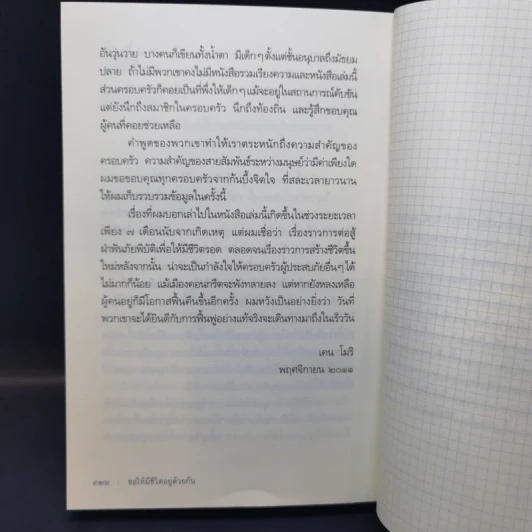 อันวุ่นวาย บางคนก็เขียนทั้งน้ำตา มีเด็กๆ ตั้งแต่ชั้นอนุบาลถึงมัธยม
ปลาย ถ้าไม่มีพวกเขาคงไม่มีหนังสือรวมเรียงความและหนังสือเล่มนี้
ส่วนครอบครัวก็คอยเป็นที่พึ่งให้เด็กๆ แม้จะอยู่ในสถานการณ์คับขัน
แต่ยังนึกถึงสมาชิกในครอบครัว นึกถึงท้องถิ่น และรู้สึกขอบคุณ
ผู้คนที่คอยช่วยเหลือ
คำพูดของพวกเขาทำให้เราตระหนักถึงความสำคัญของ
ครอบครัว ความสำคัญของสายสัมพันธ์ระหว่างมนุษย์ว่ามีค่าเพียงใด
ผมขอขอบคุณทุกครอบครัวจากก้นบึ้งจิตใจ ที่สละเวลายาวนาน
ให้ผมเก็บรวบรวมข้อมูลในครั้งนี้
เรื่องที่ผมบอกเล่าไปในหนังสือเล่มนี้เกิดขึ้นในช่วงระยะเวลา
เพียง ๗ เดือนนับจากเกิดเหตุ แต่ผมเชื่อว่า เรื่องราวการต่อสู้
ฝ่าฟันภัยพิบัติเพื่อให้มีชีวิตรอด ตลอดจนเรื่องราวการสร้างชีวิตขึ้น
ใหม่หลังจากนั้น น่าจะเป็นกำลังใจให้ครอบครัวผู้ประสบภัยอื่นๆ ได้
ไม่มากก็น้อย แม้เมืองคอนกรีตจะพังทลายลง แต่หากยังหลงเหลือ
ผู้คนอยู่ก็มีโอกาสฟื้นคืนขึ้นอีกครั้ง ผมหวังเป็นอย่างยิ่งว่า วันที่
พวกเขาจะได้ยินดีกับการฟื้นฟูอย่างแท้จริงจะเดินทางมาถึงในเร็ววัน
เคน โมริ
พฤศจิกายน ๒๐๑๑
๓๒๖ : ขอให้มีชีวิตอยู่ด้วยกัน